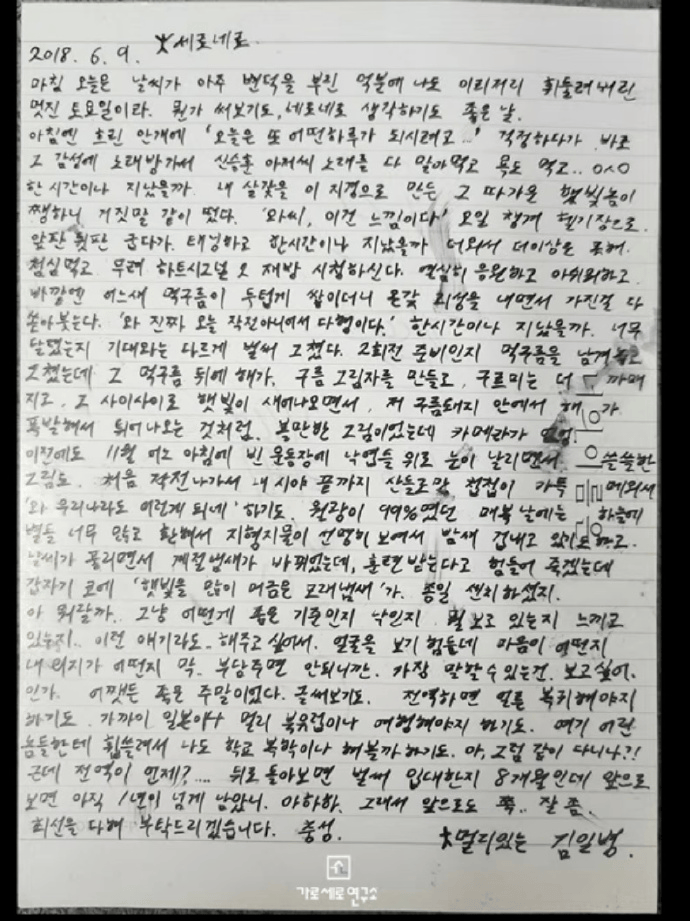 2018. 6. 9. ★세로네로
마침 오늘은 날씨가 아주 변덕을 부린 덕분에 나도 이리저리 휘둘려버린
멋진 토요일이라. 뭔가 써보기도, 네로네로 생각하기도 좋은 날.
아침엔 흐린 안개에 '오늘은 또 어떤하루가 되시려고...' 걱정하다가 바로
그 감성에 노래방가서 신승훈 아저씨 노래를 다 말아먹고 욕도 먹고.. 0^0
한 시간이나 지났을까. 내 살갗을 이 지경으로 만든 그 따가운 햇빛놈이
쨍하니 거짓말 같이 떴다. '와씨, 이건 느낌이다' 오일 챙겨 헬기장으로.
앞판 뒷판 굽다가. 태닝하고 한시간이나 지났을까 더워서 더이상은 못해.
점심먹고 무려 하트시그널 오 재방 시청하신다. 열심히 응원하고 아쉬워하고.
바깥엔 어느새 먹구름이 두텁게 쌓이더니 온갖 괴성을 내면서 가진걸 다
쏟아붓는다. '와 진짜 오늘 작전아니어서 다행이다.' 한시간이나 지났을까. 너무
달렸는지 기대와는 다르게 벌써 그쳤다. 2회전 준비인지 먹구름을 남겨놓고
그쳤는데 그 먹구름 뒤에 해가, 구름 그림자를 만들고, 구르미는 더 까매
지고, 그 사이사이로 햇빛이 새어나오면서, 저 구름돼지 안에서 해가
폭발해서 튀어나오는 것처럼. 볼만한 그림이었는데 카메라가
이전에도 11월 어느 아침에 빈 운동장에 낙엽들 위로 눈이 날리면서 쓸쓸한
그림도. 처음 작전나가서 내 시야 끝까지 산들로만 첩첩이 가득 메워서
'와 우리나라도 이렇게 되네' 하기도. 월광이 99%였던 매복 날에는 하늘에
별들 너무 많고 환해서 지형지물이 선명히 보여서 밤새 겁내고 있기도하고.
날씨가 풀리면서 계절냄새가 바뀌었는데, 훈련 받는다고 힘들어 죽겠는데
갑자기 코에 '햇빛을 많이 머금은 모래냄새'가. 종일 센치하셨지.
아 뭐랄까.. 그냥 어떻게 좋은 기준인지 낙인지 뭘 보고 있는지 느끼고
있는지.. 이런 얘기라도.. 해주고 싶어서. 얼굴을 보기 힘들데 마음이 어떤지
내 의지가 어떤지 막.. 부담주면 안되니깐. 가장 말할수있는건. 보고싶어.
인가. 어쨌든 좋은 주말이었다. 글써보기도. 전역하면 얼른 복귀해야지
하기도. 가까이 일본이나 멀리 북유럽이나 여행해야지 하기도. 여기 어린
놈들한테 휩쓸려서 나도 학교 복학이나 해볼까 하기도. 아, 그럼 같이 다니나?!
근데 전역이 언제?.... 뒤로 돌아보면 벌써 입대한지 8개월인데 앞으로
보면 아직 1년이 넘게 남았니. 아하하. 그래서 앞으로도 쭉.. 잘 좀..
최선을 다해 부탁드리겠습니다. 충성. ★멀리있는 김일병.
가로세로연구소